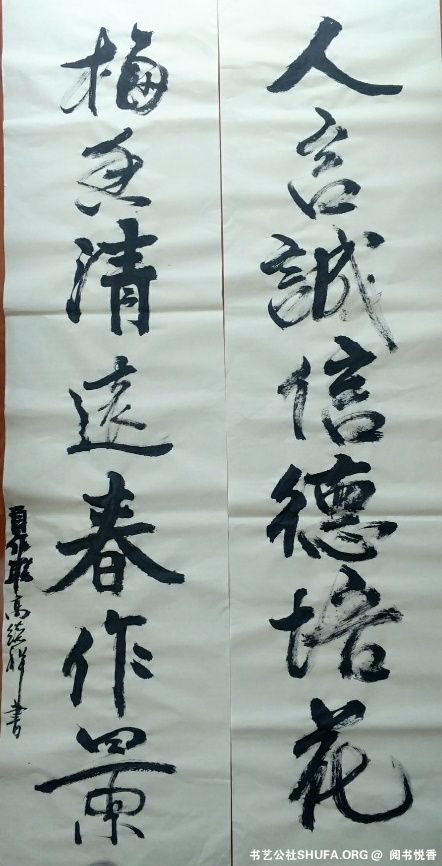 人言誠信德培花
梅香清遠春作景
自作聯高 祥書
书艺公社SHUFA.ORG @ 阅书悦香